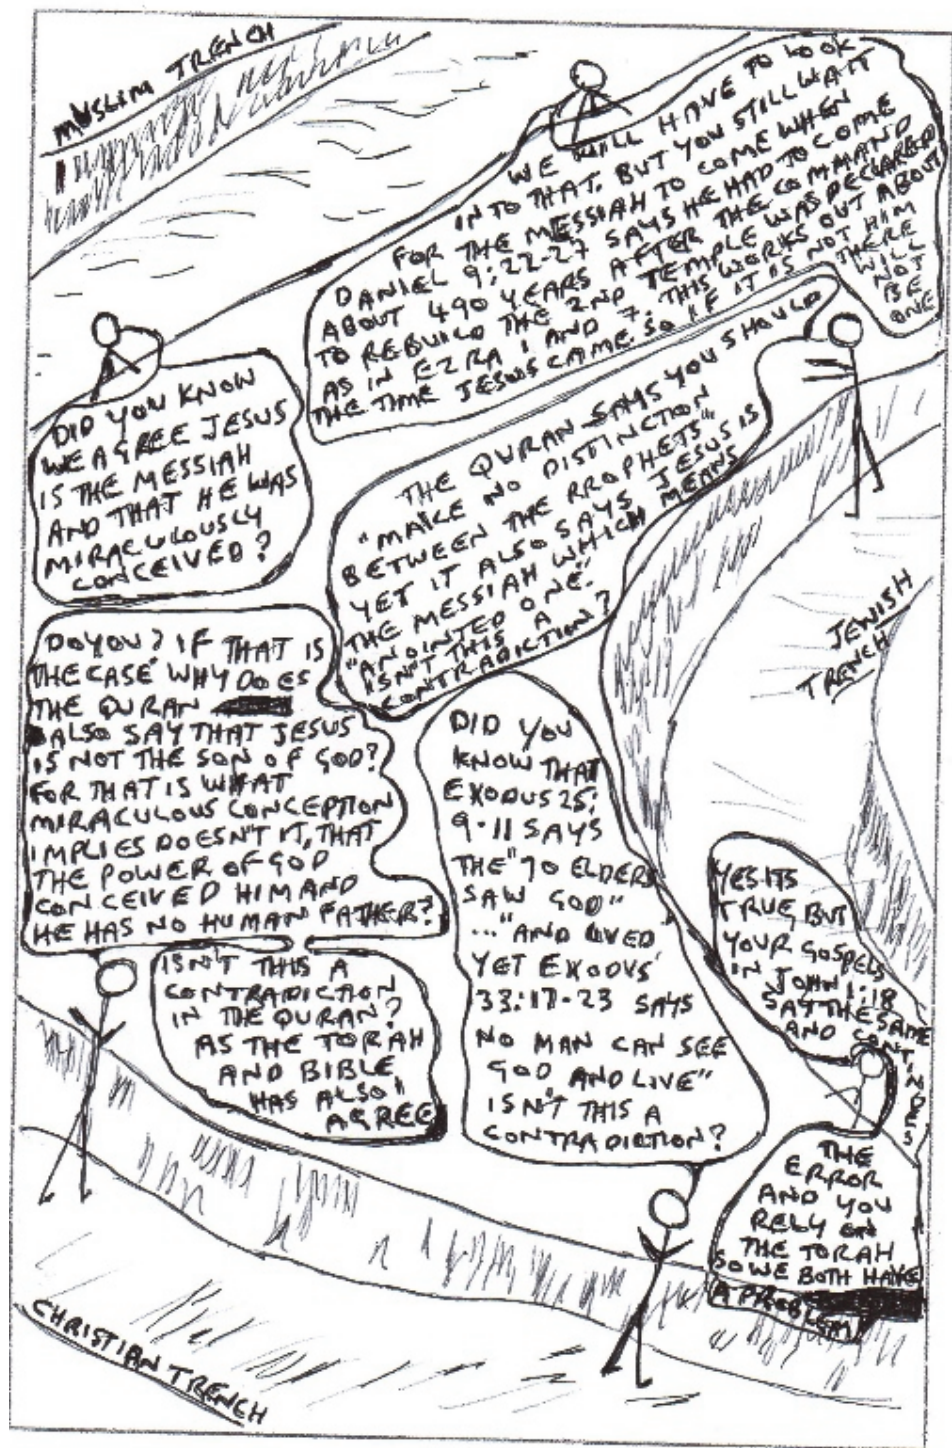 MUSLIM TRENCH
WE WILL HAVE TO LOOK
INTO THAT. BUT YOU STILL WAIT
FOR THE MESSIAH TO COME WHEN
DANIEL 9:22-27 SAYS HE HAD TO COME
ABOUT 490 YEARS AFTER THE COMMAND
TO REBUILD THE 2ND TEMPLE WAS DECLARED
AS IN EZRA 1 AND 7. THIS WORKS OUT ABOUT
THE TIME JESUS CAME. SO IF IT IS NOT HIM
THERE
WILL
NOT
BE
ONE
DID YOU KNOW
WE AGREE JESUS
IS THE MESSIAH
AND THAT HE WAS
MIRACULOUSLY
CONCEIVED?
THE QURAN SAYS YOU SHOULD
"MAKE NO DISTINCTION
BETWEEN THE RROPHETS"
YET IT ALSO SAYS JESUS IS
THE MESSIAH WHICH MEANS
"ANOINTED ONE."
ISN'T THIS A
CONTRADICTION?
JEWISH
TRENCH
DO YOU? IF THAT IS
THE CASE WHY DOES
THE QURAN
ALSO SAY THAT JESUS
IS NOT THE SON OF GOD?
FOR THAT IS WHAT
MIRACULOUS CONCEPTION
IMPLIES DOESN'T IT, THAT
THE POWER OF GOD
CONCEIVED HIM AND
HE HAS NO HUMAN FATHER?
ISN'T THIS A
CONTRADICTION
IN THE QURAN?
AS THE TORAH
AND BIBLE
HAS ALSO"
AGREE
DID YOU
KNOW THAT
EXODUS 25:
9-11 SAYS
THE "70 ELDERS
SAW GOD"
..."AND LIVED"
YET EXODUS
33:17-23 SAYS
NO MAN CAN SEE
GOD AND LIVE"
ISN'T THIS A
CONTRADICTION?
YES ITS
TRUE BUT
YOUR GOSPELS
IN JOHN 1:18
SAY THE SAME
AND CONTINUES
THE
ERROR
AND YOU
RELY ON
THE TORAH
SO WE BOTH HAVE
A PROBLEM!
CHRISTIAN TRENCH